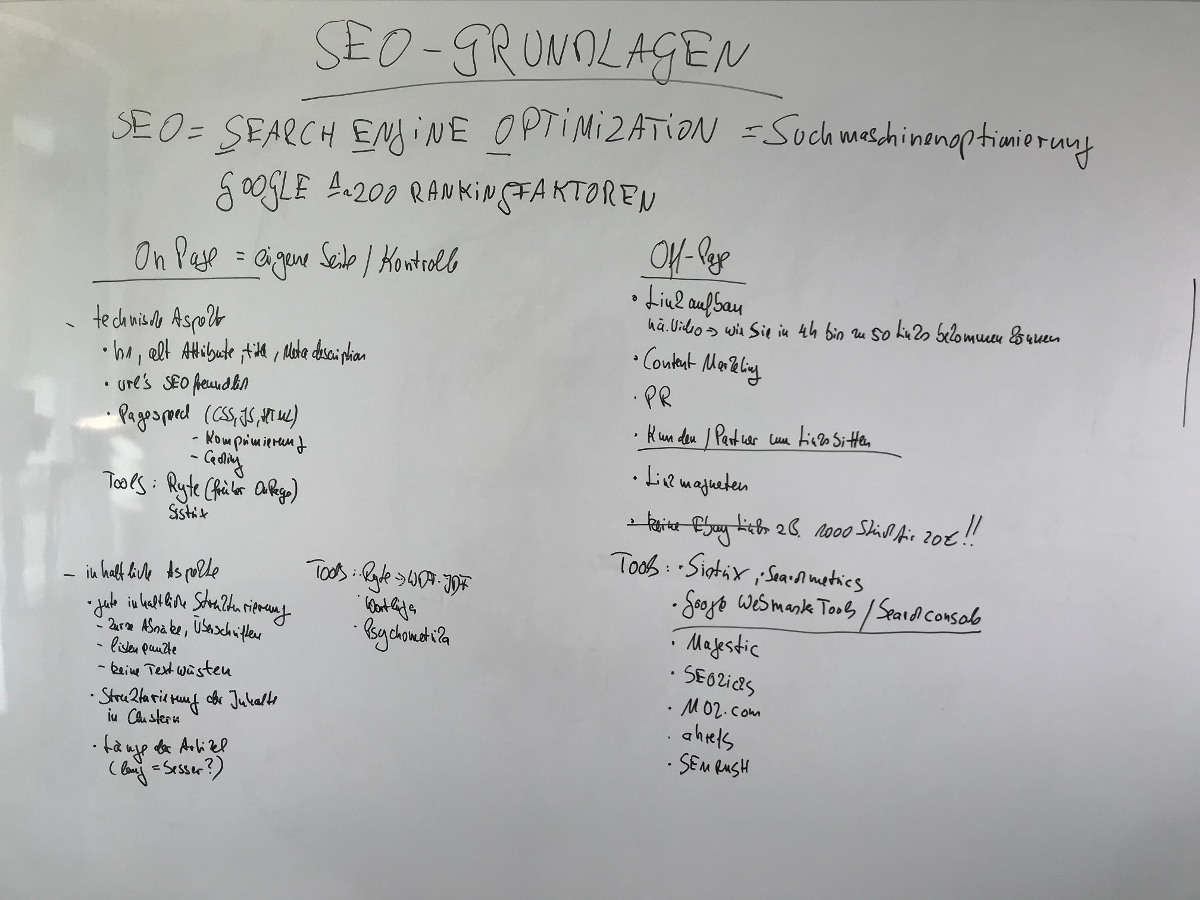 SEO-GRUNDLAGEN
SEO = SEARCH ENGINE OPTIMIZATION = Suchmaschinenoptimierung
GOOGLE 200 RANKINGFAKTOREN
On Page = eigene Seite / Kontrolle
- technische Aspekte
• h1, alt Attribute, title, Meta description
• url's SEO freundlich
• Pagespeed (CSS, JS, HTML)
- Komprimierung
- Caching
Tools: Ryte (früher OnPage)
Sistrix
- inhaltliche Aspekte
• gute inhaltliche Strukturierung
- kurze Absätze, Überschriften
- Listenpunkte
- keine Textwüsten
• Strukturierung der Inhalte
in Clustern
• Länge der Artikel
(lang = besser?)
Tools: • Ryte → WDF·IDF
•
• Psychometrika
Off-Page
• Linkaufbau
nä. Video → wie Sie in 4h bis zu 50 Links bekommen können
• Content Marketing
• PR
• Kunden / Partner um Links bitten
• Linkmagneten
• keine Ebay Links zB. 1000 Stück für 20€!!
Tools: • Sistrix, • Searchmetrics
• Google Webmaster Tools / Searchconsole
• Majestic
• SEOkicks
• MOZ.com
• ahrefs
• SEMRUSH